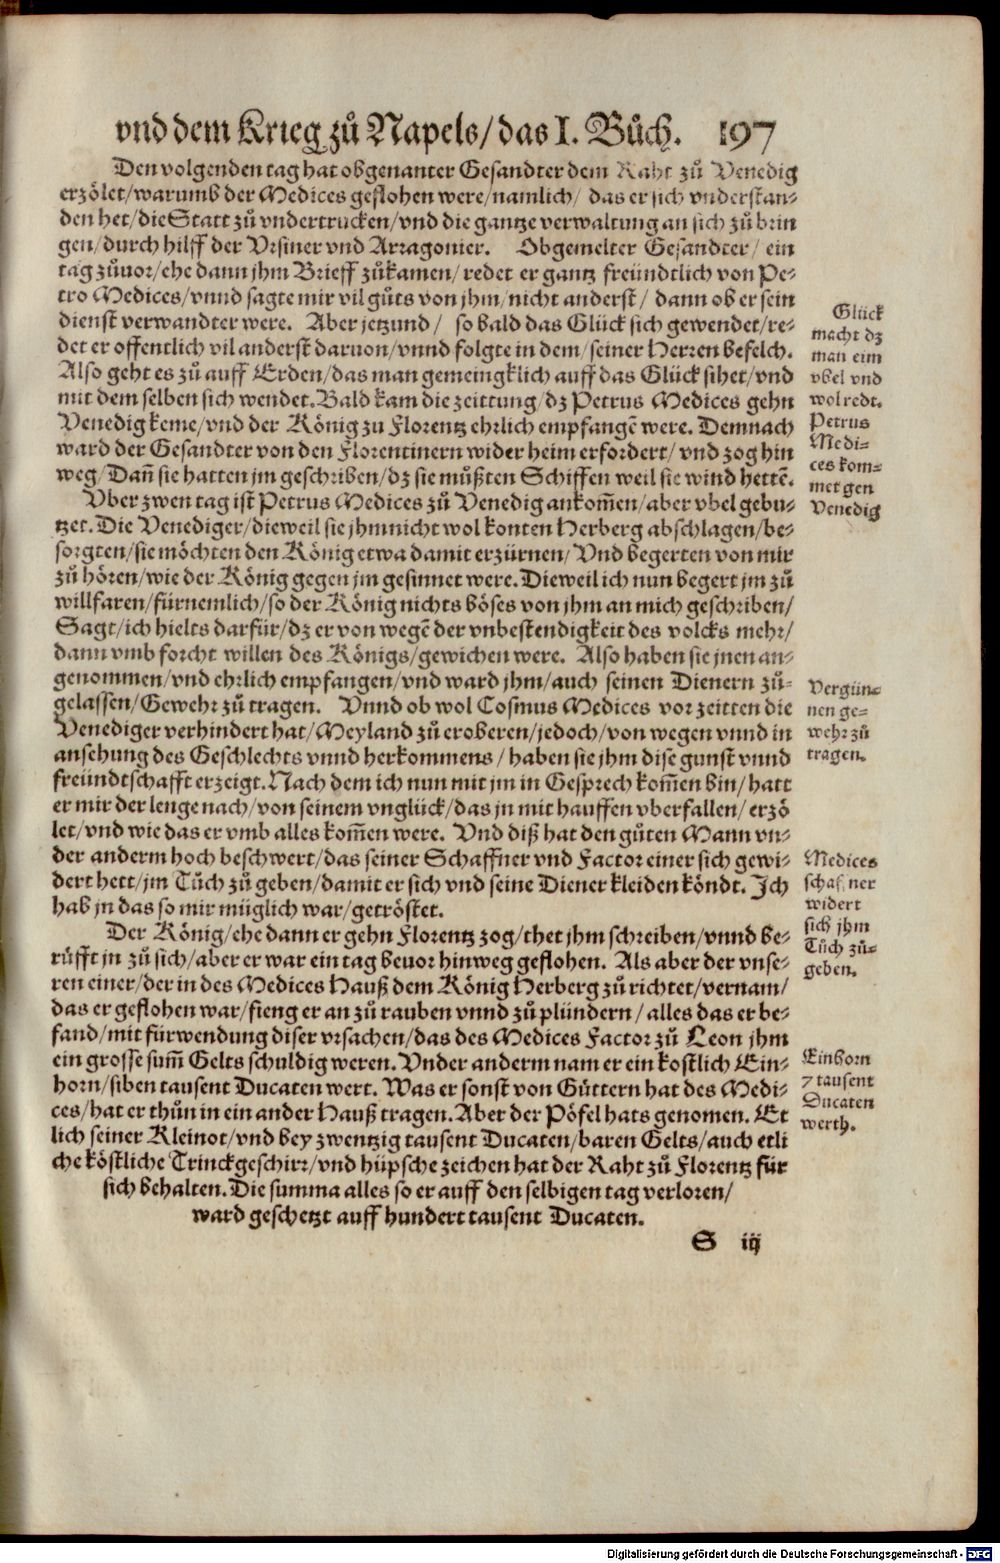 vnd dem Krieg zů Napels/das I. Bůch. 197
Den volgenden tag hat obgenanter Gesandter dem Raht zů Venedig
erzölet/warumb der Medices geflohen were/namlich/ das er sich vnderstan⸗
den het/die Statt zů vndertrucken/vnd die gantze verwaltung an sich zů brin
gen/durch hilff der Vrsiner vnd Arragonier. Obgemelter Gesandter/ ein
tag zůuor/ehe dann jhm Brieff zůkamen/redet er gantz freündtlich von Pe⸗
tro Medices/vnnd sagte mir vil gůts von jhm/nicht anderst/ dann ob er sein
dienst verwandter were. Aber jetzund/ so bald das Glück sich gewendet/re⸗
det er offentlich vil anderst daruon/vnnd folgte in dem/seiner Herren befelch.
Also geht es zů auff Erden/das man gemeingklich auff das Glück sihet/vnd
mit dem selben sich wendet. Bald kam die zeittung/dz Petrus Medices gehn
Venedig keme/vnd der König zu Florentz ehrlich empfangẽ were. Demnach
ward der Gesandter von den Florentinern wider heim erfordert/vnd zog hin
weg/Dañ sie hatten jm geschriben/dz sie můßten Schiffen weil sie wind hettẽ.
Vber zwen tag ist Petrus Medices zů Venedig ankom̃en/aber vbel gebu⸗
tzet. Die Venediger/dieweil sie jhm nicht wol konten Herberg abschlagen/be⸗
sorgten/sie möchten den König etwa damit erzürnen/Vnd begerten von mir
zů hören/wie der König gegen jm gesinnet were. Dieweil ich nun begert jm zů
willfaren/fürnemlich/so der König nichts böses von jhm an mich geschriben/
Sagt/ich hielts darfür/dz er von wegẽ der vnbestendigkeit des volcks mehr/
dann vmb forcht willen des Königs/gewichen were. Also haben sie jnen an⸗
genommen/vnd ehrlich empfangen/vnd ward jhm/auch seinen Dienern zů⸗
gelassen/Gewehr zů tragen. Vnnd ob wol Cosmus Medices vor zeitten die
Venediger verhindert hat/Meyland zů eroberen/jedoch/von wegen vnnd in
ansehung des Geschlechts vnnd herkommens/haben sie jhm dise gunst vnnd
freündtschafft erzeigt. Nach dem ich nun mit jm in Gesprech kom̃en bin/hatt
er mir der lenge nach/von seinem vnglück/das jn mit hauffen vberfallen/erzö
let/vnd wie das er vmb alles kom̃en were. Vnd diß hat den gůten Mann vn⸗
der anderm hoch beschwert/das seiner Schaffner vnd Factor einer sich gewi⸗
dert hett/jm Tůch zů geben/damit er sich vnd seine Diener kleiden köndt. Jch
hab jn das so mir müglich war/getröstet.
Der König/ehe dann er gehn Florentz zog/thet jhm schreiben/vnnd be⸗
růfft jn zů sich/aber er war ein tag beuor hinweg geflohen. Als aber der vnse⸗
ren einer/der in des Medices Hauß dem König Herberg zů richtet/vernam/
das er geflohen war/fieng er an zů rauben vnnd zů plündern/alles das er be⸗
fand/mit fürwendung diser vrsachen/das des Medices Factor zů Leon jhm
ein grosse sum̃ Gelts schuldig weren. Vnder anderm nam er ein kostlich Ein⸗
horn/siben tausent Ducaten wert. Was er sonst von Güttern hat des Medi⸗
ces/hat er thůn in ein ander Hauß tragen. Aber der Pöfel hats genomen. Et
lich seiner Kleinot/vnd bey zwentzig tausent Ducaten/baren Gelts/auch etli
che köstliche Trinckgeschirr/vnd hüpsche zeichen hat der Raht zů Florentz für
sich behalten. Die summa alles so er auff den selbigen tag verloren/
ward geschetzt auff hundert tausent Ducaten.
S iij
Glück
macht dz
man eim
vbel vnd
wol redt.
Petrus
Medi⸗
ces kom⸗
met gen
Venedig
Vergün⸗
nen ge⸗
wehr zů
tragen.
Medices
schaffner
widert
sich jhm
Tůch zů⸗
geben.
Einhorn
7 tausent
Ducaten
werth.
Digitalisierung gefördert durch die Deutsche Forschungsgemeinschaft - DFG